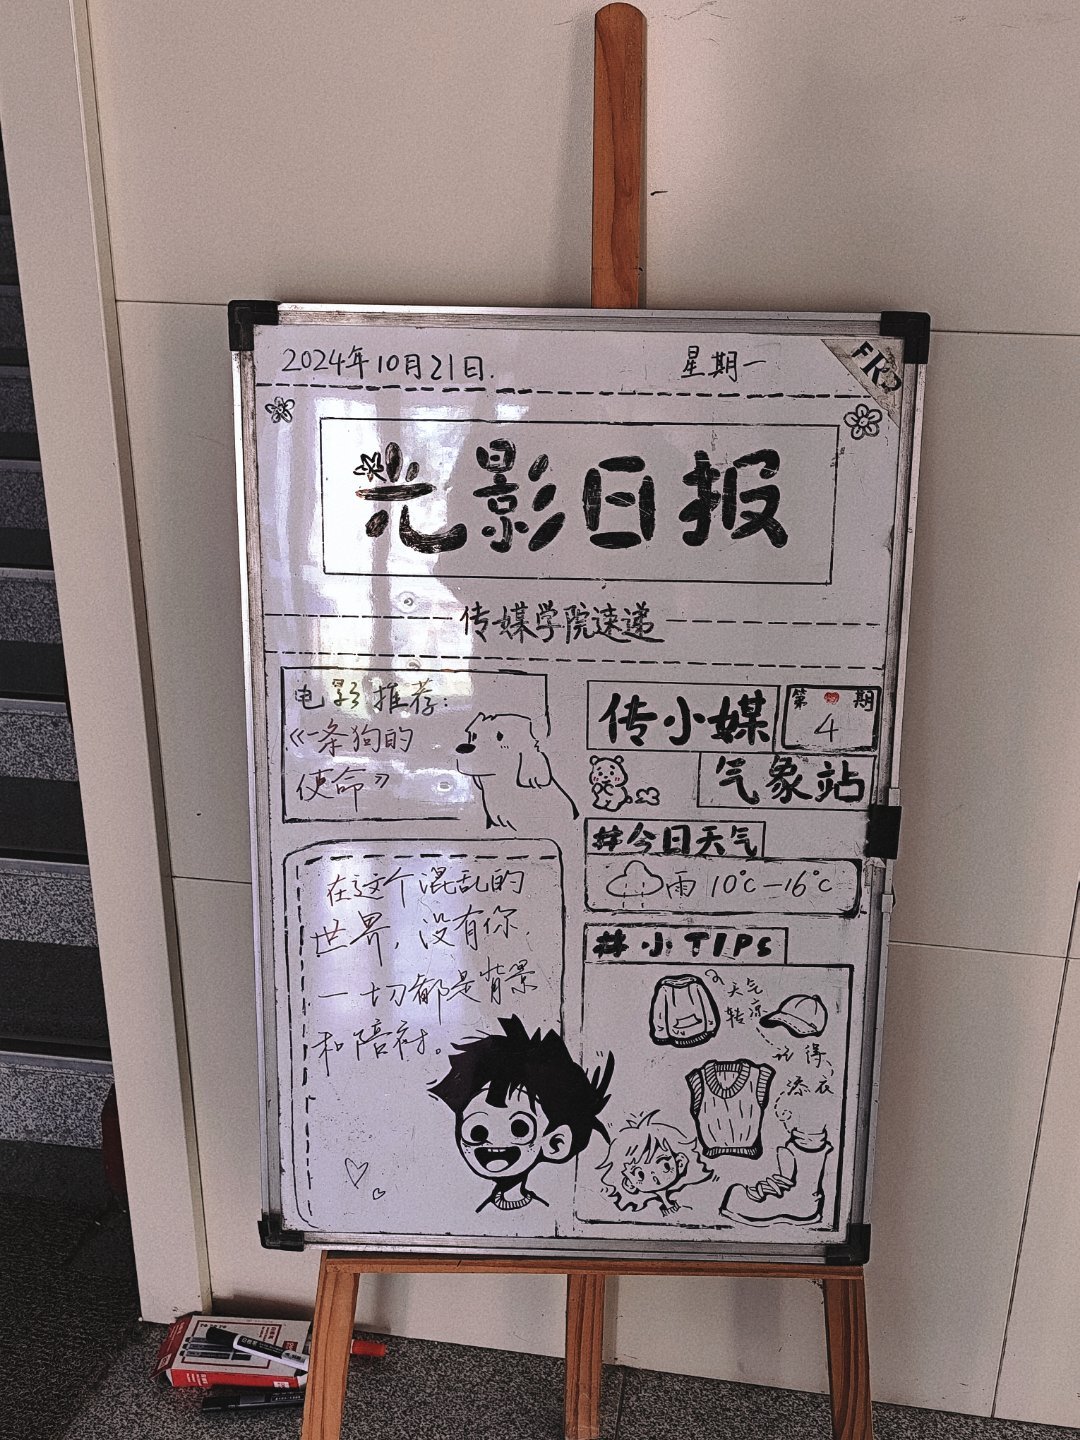 2024年10月21日.
星期一
光影日报
传媒学院速递
电影推荐:
《一条狗的
使命》
在这个混乱的
世界,没有你,
一切都是背景
和陪衬。
传小媒
第 期
4
气象站
#今日天气
雨 10℃-16℃
#小TIPS
天气
转凉
记得
添衣